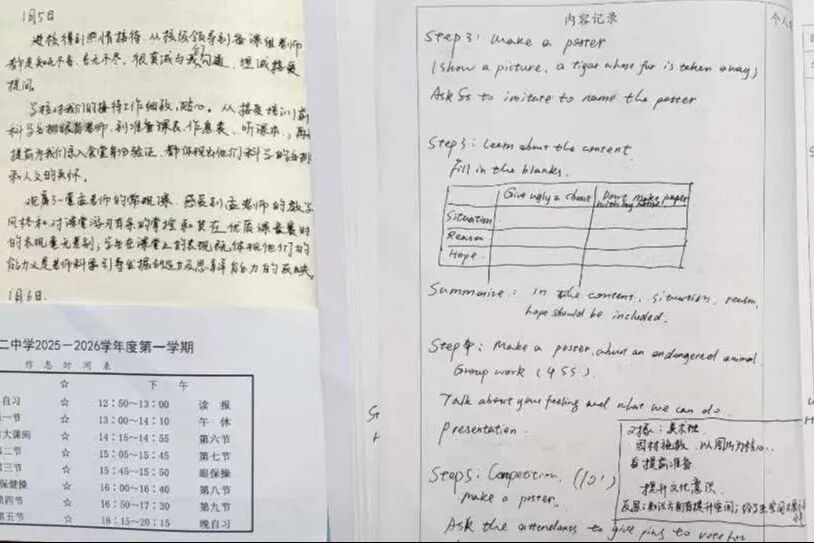 1月5日
进校得到热情接待,从校级领导到备课组老师
都是知无不言,言无不尽,很真诚与我们沟通,坦诚接受
提问。
学校对我们的接待工作细致、贴心。从接受培训
科学安排跟岗老师,到准备课表、作息表、听课本,再
提前为我们录入食堂身份验证,都体现出他们科学的
和人文的关怀。
观摩了 孟老师的常规课,感受到孟老师的教学
风格和对课堂游刃有余的掌控和其在优质课竞赛时
的表现毫无差别;学生在课堂上的表现既体现他们的
能力又是老师科学引导
1月6日.
二中学2025-2026学年度第一学期
作息时间表
☆ 下午
自习 ☆ 12:50~13:00 读报
一节 ☆ 13:00~14:10 午休
大课间 ☆ 14:15~14:55 第六节
二节 ☆ 15:05~15:45 第七节
三节 ☆ 15:45~15:50 眼保操
保健操 ☆ 16:00~16:40 第八节
第四节 ☆ 16:50~17:30 第九节
第五节 ☆ 18:15~20:15 晚自习
内容记录
个人
Step 3: make a poster
(show a picture, a tiger whose fur is taken away)
Ask Ss to imitate to name the poster
Step 3: Learn about the content.
fill in the blanks.
Give ugly a chance Don't make paper
Situation
Reason
Hope
Summarise: in the content, situation, reason,
hope should be included.
Step 4: Make a poster about an endangered animal.
Group work (4 SS)
Talk about your feeling and what we can do.
presentation.
对象:美术班
因材施教,以图片为核心.
提前准备
提升文化意识.
反思:知识方面有提升空间;
Step 5: Competition. (10')
make a poster.
Ask the attendants to give pins to vote for